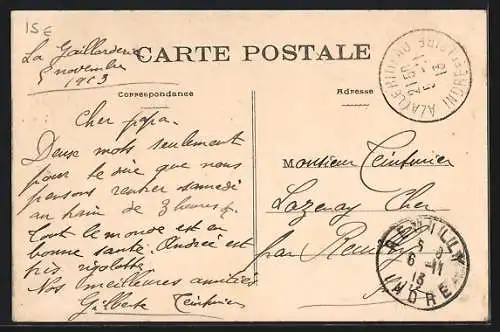 15€
La Gaillarderie
5 novembre
1913
CARTE POSTALE
Correspondance
Adresse
Cher papa.
Deux mots seulement
pour te dire que nous
pensons rentrer samedi
au train de 3 heures
tout le monde est en
bonne santé. Andrée est
très rigolotte.
Nos meilleures amitiés
Gilberte Teinturier
Monsieur Teinturier
Lazenay Cher
par Reuilly
Indre
REUILLY
6-11
13
INDRE
21 50
5
13